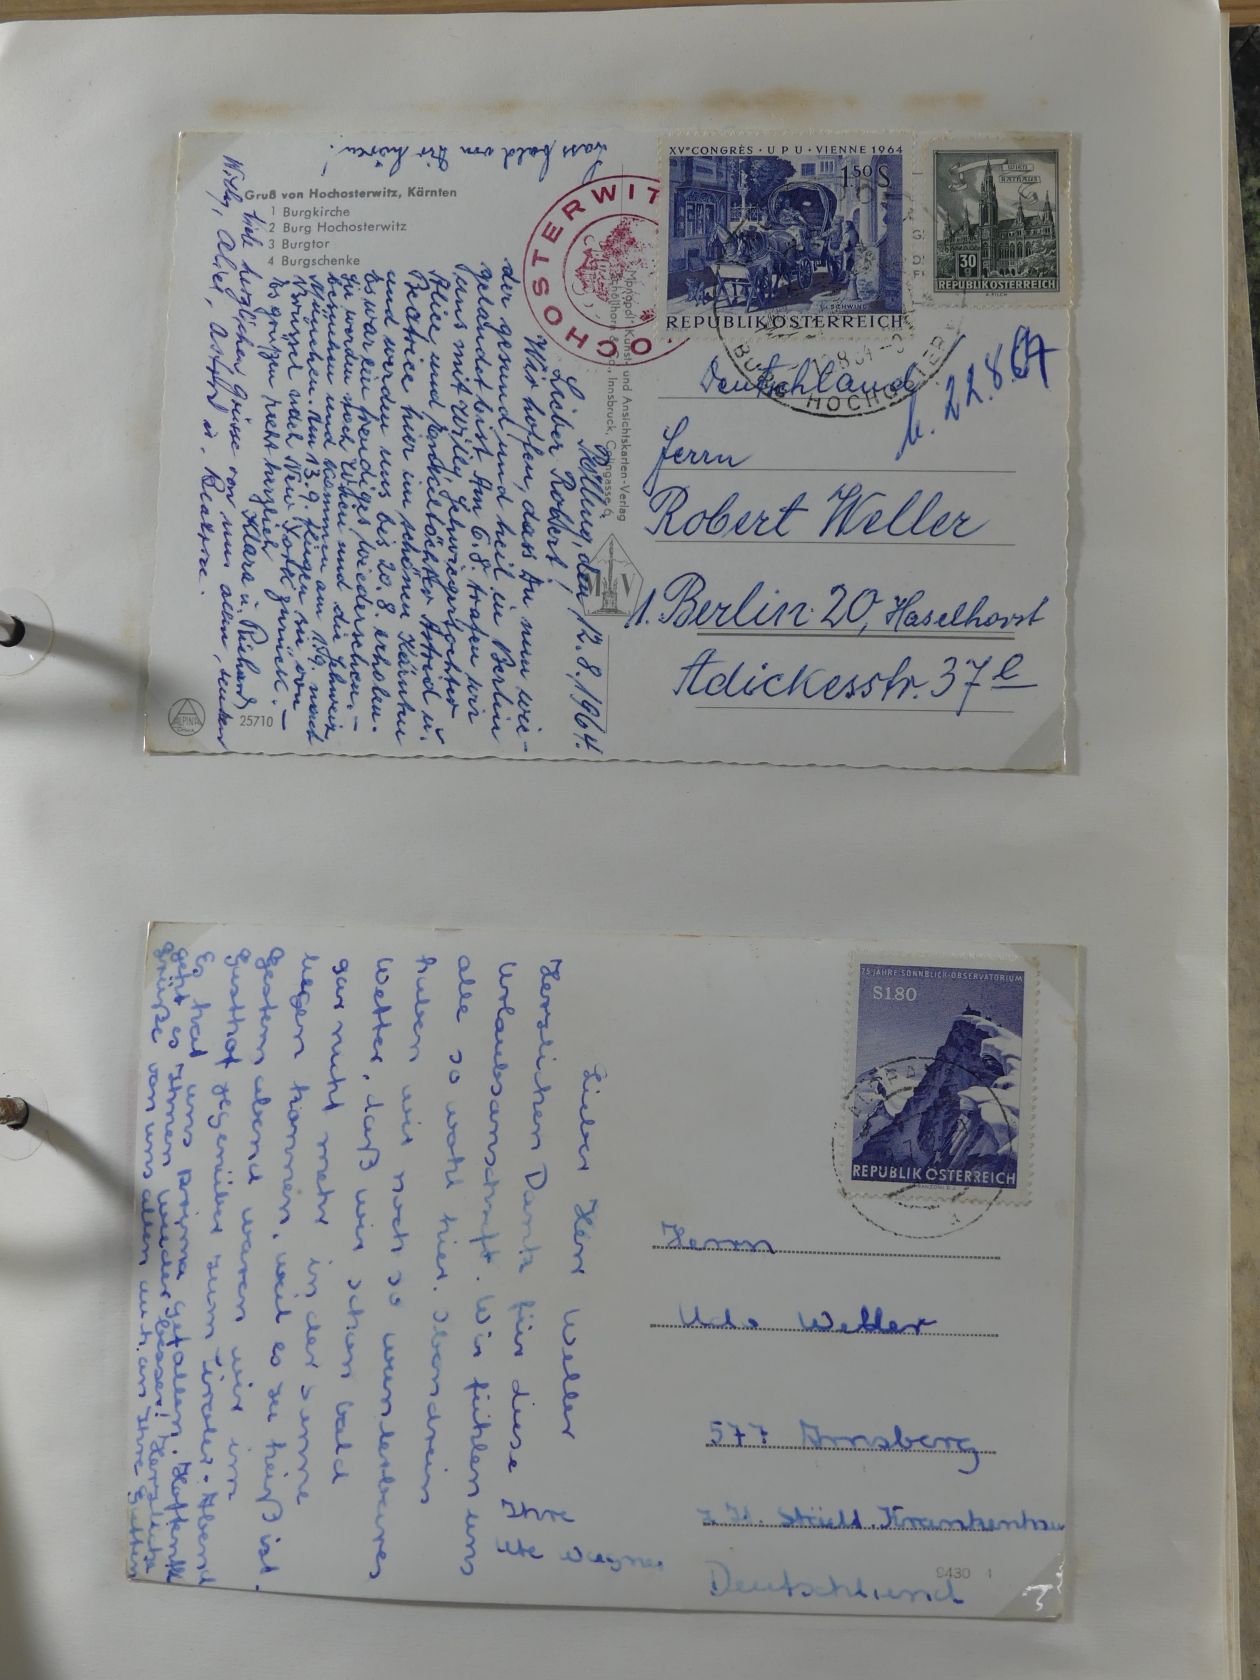 Lass bald von Dir hören!
Gruß von Hochosterwitz, Kärnten
1 Burgkirche
2 Burg Hochosterwitz
3 Burgtor
4 Burgschenke
den 12.8.1964.
Lieber Robert!
Wir hoffen, dass Du nun wie-
der gesund und heil in Berlin
gelandet bist. Am 6.8. trafen wir
uns mit Willy, Schwiegertochter
Alice, und Enkeltöchter Astrid u.
Beatrice hier im schönen Kärnten
und werden uns bis 20.8. erholen.
Es war ein freudiges Wiedersehen. –
Sie werden noch Wien und die Schweiz
besuchen und kommen am 1.9. nach
München. Am 13.9. fliegen sie von
nach New York zurück. –
Es grüßen recht herzlich
Klara u. Richard
Liebe herzlichen Grüsse von uns allen,
Willy, Alice, Astrid u. Beatrice.
ALPINA
Druck
25710
Monopol-Kunst- und Ansichtskarten-Verlag
Schöllhorn & Co., Innsbruck, Colingasse 6
MV
HOCHOSTERWITZ
XV CONGRÈS · UPU · VIENNE 1964
1.50 S
SCHWIND
REPUBLIK ÖSTERREICH
WIEN
RATHAUS
30
REPUBLIK ÖSTERREICH
BURG HOCHOSTERWITZ
b. 22.8.64
Deutschland
Herrn
Robert Weller
1. Berlin 20, Haselhorst
Adickesstr. 37e
Lieber Herr Weller
Herzlichen Dank für diese
Urlaubsanschrift. Wir fühlen uns
alle so wohl hier. Obendrein
haben wir noch so wunderbares
Wetter, daß wir schon bald
gar nicht mehr in der Sonne
liegen können, weil es zu heiß ist.
Gestern abend waren wir im
Gasthof gegenüber zum Tiroler-Abend
Es hat uns prima gefallen. Hoffentlich
geht es Ihnen wieder besser! Herzliche
Grüße von uns allen auch an Ihre Gattin
Ihre
Ute Wagner
75 JAHRE SONNBLICK-OBSERVATORIUM
S1.80
REPUBLIK ÖSTERREICH
Herrn
Udo Weller
577 Arnsberg
z. Zt. Städt. Krankenhaus
Deutschland
9430 1